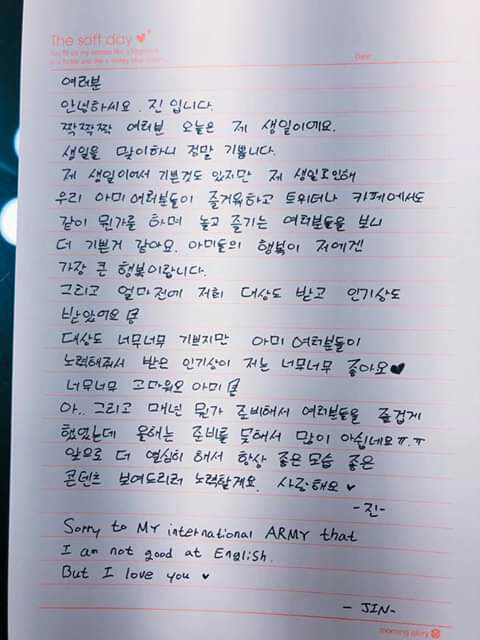 The soft day
Date:
여러분
안녕하시요. 진 입니다.
짝짝짝 여러분 오늘은 제 생일이에요.
생일을 맞이하니 정말 기쁩니다.
제 생일이여서 기쁜것도 있지만 제 생일로인해
우리 아미 여러분들이 즐거워하고 트위터나 카페에서도
같이 뭔가를 하며 놀고 즐기는 여러분들을 보니
더 기쁜거 같아요. 아미들의 행복이 저에겐
가장 큰 행복이랍니다.
그리고 얼마전에 저희 대상도 받고 인기상도
받았어요
대상도 너무너무 기쁘지만 아미 여러분들이
노력해줘서 받은 인기상이 저는 너무너무 좋아요♥
너무너무 고마워요 아미
아.. 그리고 매년 뭔가 준비해서 여러분들을 즐겁게
했었는데 올해는 준비를 못해서 많이 아쉽네요ㅠ.ㅠ
앞으로 더 열심히 해서 항상 좋은 모습 좋은
콘텐츠 보여드리려 노력할게요. 사랑해요 ♥
-진-
Sorry to MY international ARMY that
I am not good at English.
But I love you ♥
- JIN-
morning glory